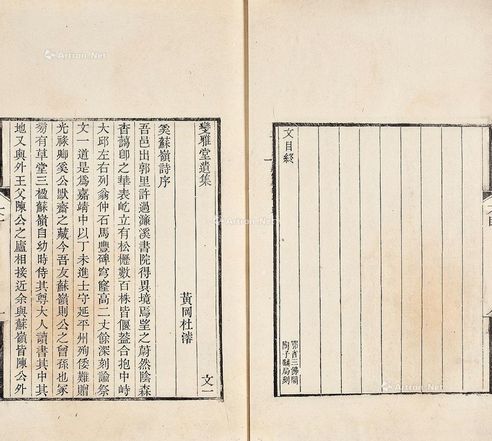 文目終
鄂省三佛閣
陶子麟局刻
變雅堂遺集
黃岡杜濬
奚蘇嶺詩序
吾邑出郭里許過濂溪書院得異境焉望之蔚然陰森
杳藹卽之華表屹立有松櫪數百株皆偃蓋合抱中峙
大邱左右列翁仲石馬豐碑穹窿高二丈餘深刻諭祭
文一道是爲嘉靖中以丁未進士守延平州殉倭難贈
光祿卿奚公默齋之藏今吾友蘇嶺則公之曾孫也冢
旁有草堂三楹蘇嶺自幼時侍其尊大人讀書其中其
地又與外王父陳公之廬相接近余與蘇嶺皆陳公外
文一
Artron.Net
Artron.Net
Artron.Net
Artron.Net